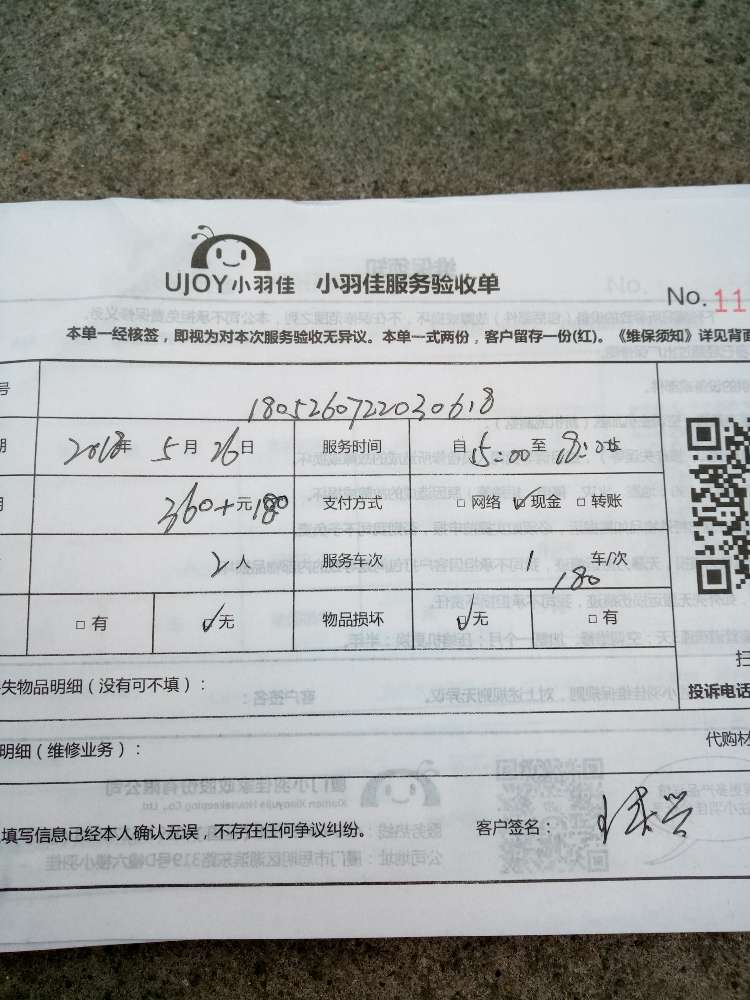 UJOY小羽佳 小羽佳服务验收单
No. 11
本单一经核签，即视为对本次服务验收无异议。本单一式两份，客户留存一份(红)。《维保须知》详见背面
号 1805260722030618
期 2018年 5月 26日 服务时间 自 15:00 至 18:00
360+元180 支付方式 □网络 ☑现金 □转账
2人 服务车次 1 车/次
180
□有 ☑无 物品损坏 ☑无 □有
失物品明细（没有可不填）：
投诉电话
明细（维修业务）：
代购材
填写信息已经本人确认无误，不存在任何争议纠纷。 客户签名：